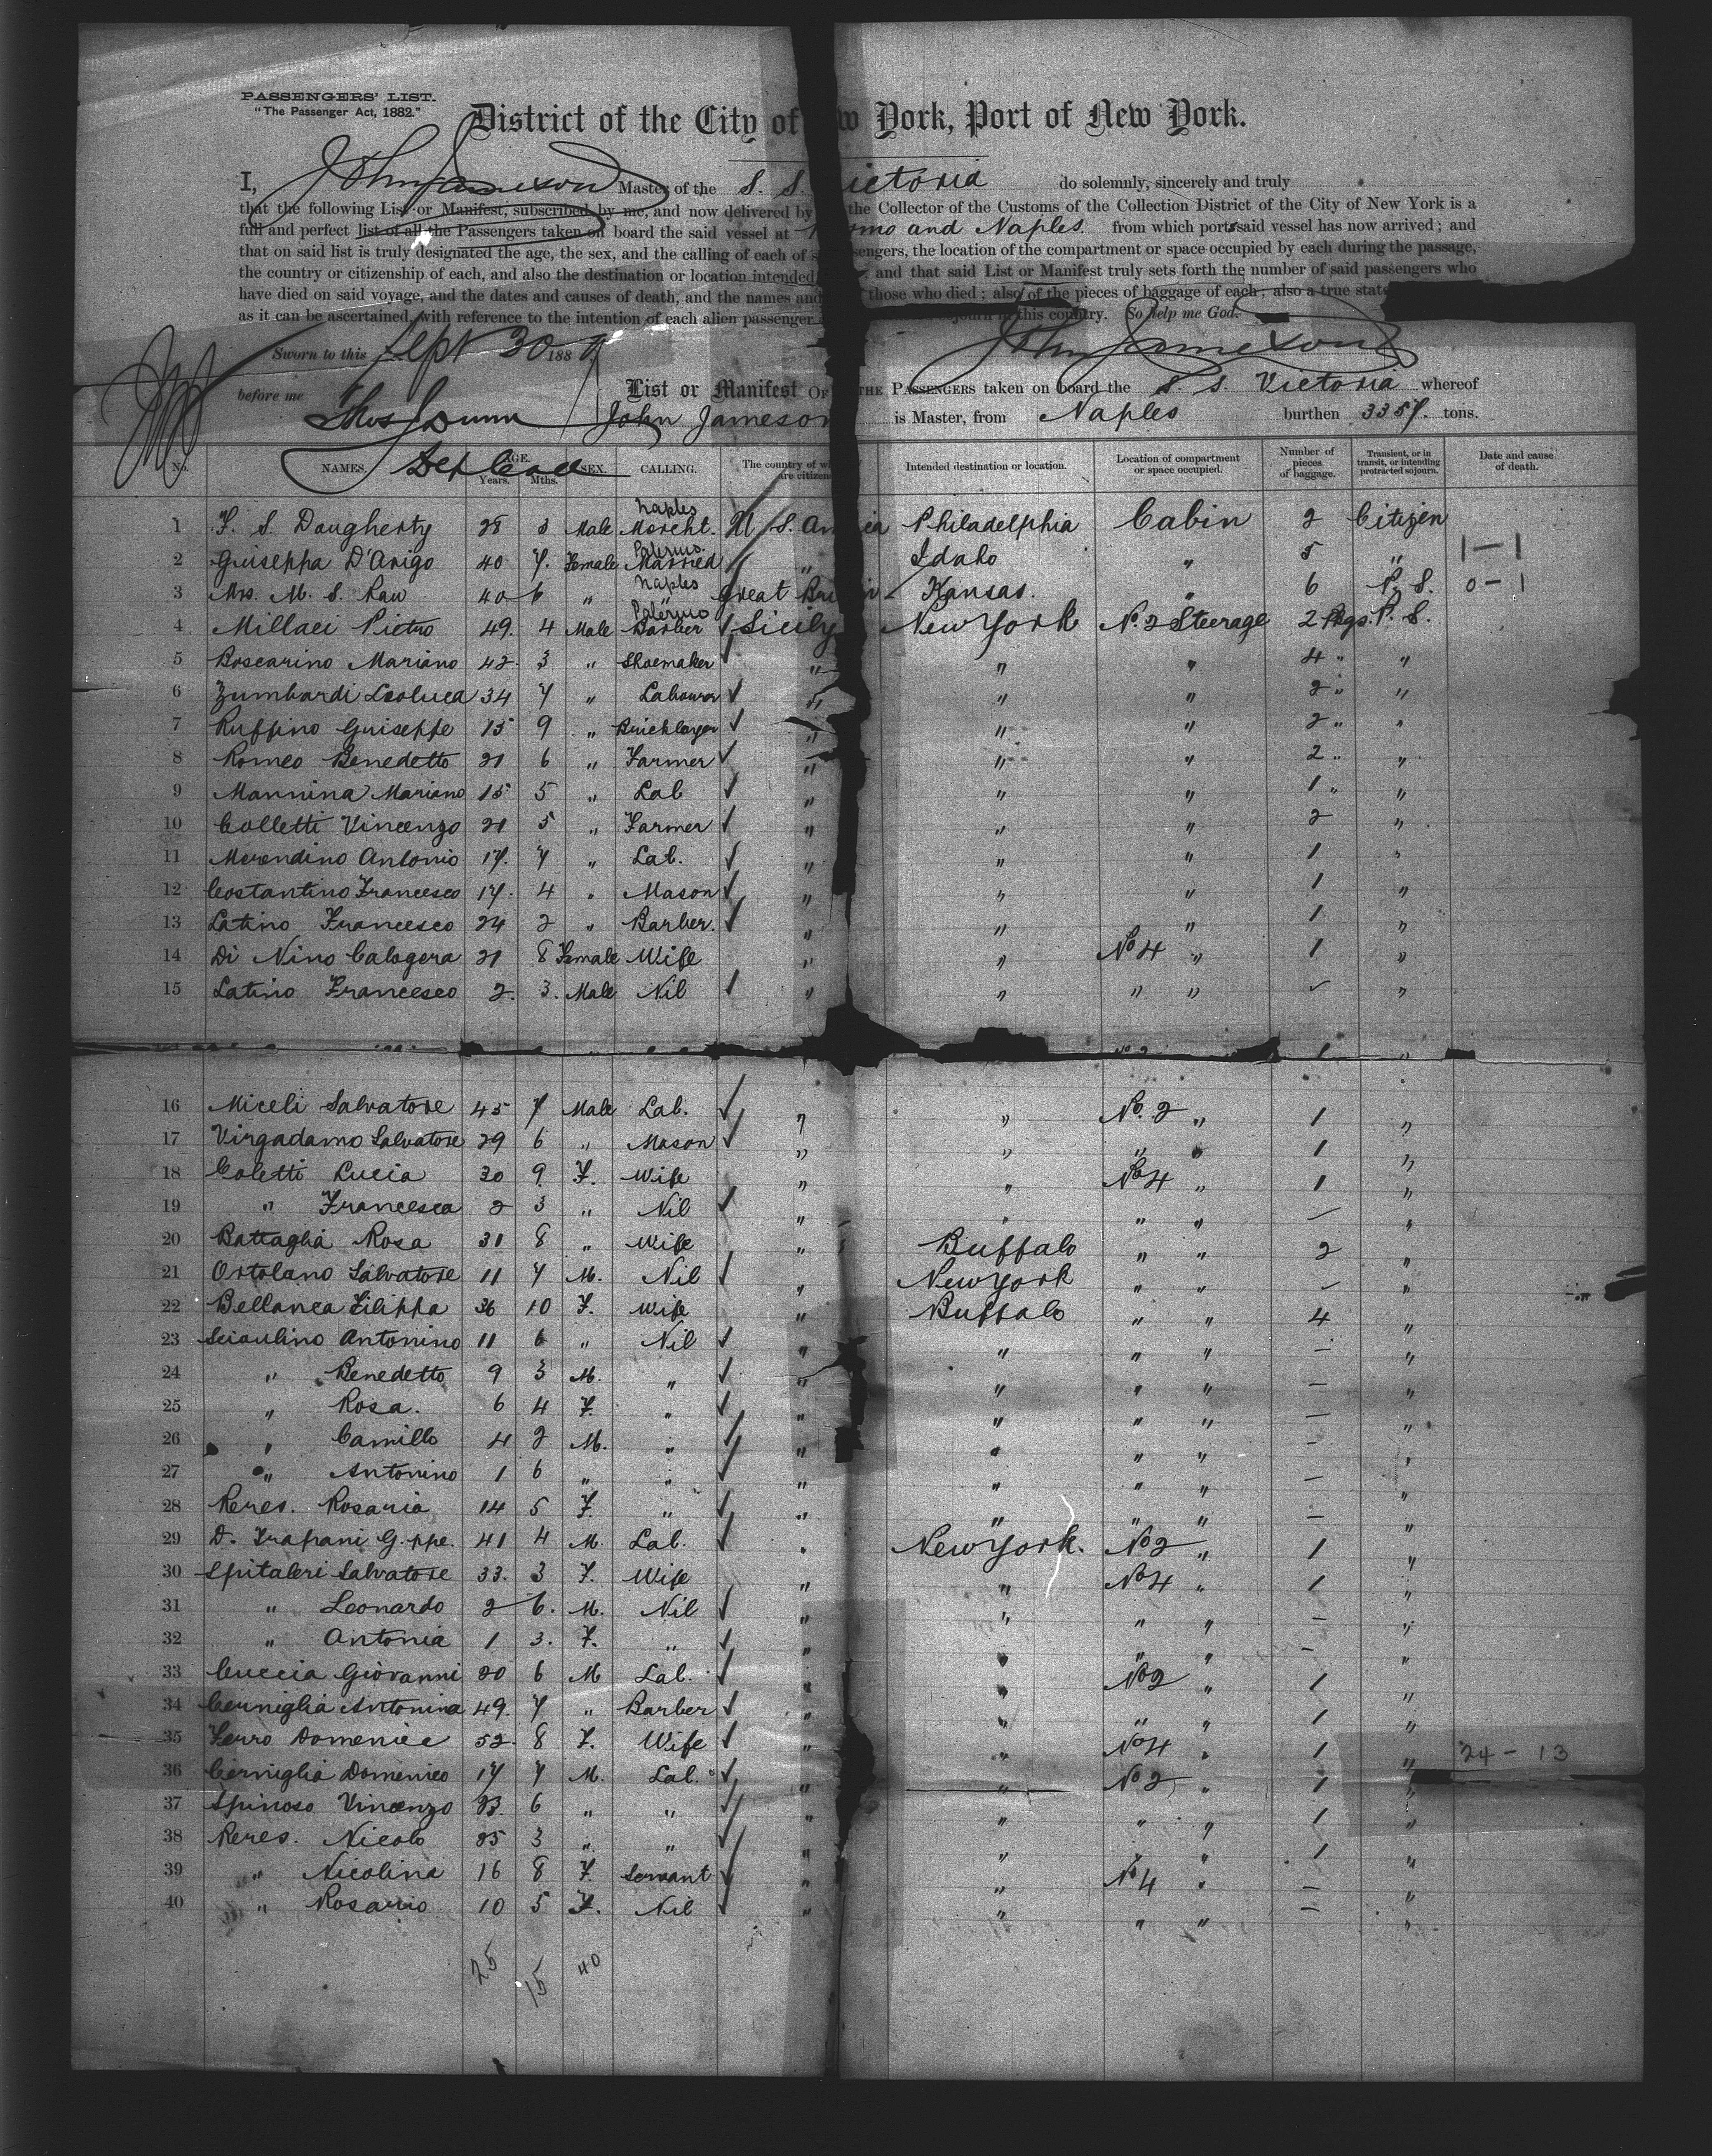 PASSENGERS' LIST.
"The Passenger Act, 1882."
District of the City of w York, Port of New York.
I, John Jameson Master of the S. S. ictoria do solemnly, sincerely and truly
that the following List or Manifest, subscribed by me, and now delivered by the Collector of the Customs of the Collection District of the City of New York is a
full and perfect list of all the Passengers taken on board the said vessel at mo and Naples. from which port said vessel has now arrived; and
that on said list is truly designated the age, the sex, and the calling of each of s sengers, the location of the compartment or space occupied by each during the passage,
the country or citizenship of each, and also the destination or location intended and that said List or Manifest truly sets forth the number of said passengers who
have died on said voyage, and the dates and causes of death, and the names and those who died; also of the pieces of baggage of each; also a true state
as it can be ascertained, with reference to the intention of each alien passenger journ in this country. So help me God.
Sworn to this Sept 30 188
John Jameson
before me
List or Manifest OF THE PASSENGERS taken on board the S. S. Victoria whereof
John Jameson is Master, from Naples burthen 3357. tons.
Dep Coll
No. NAMES. AGE. Years. Mths. SEX. CALLING. The country of wh are citizen Intended destination or location. Location of compartment or space occupied. Number of pieces of baggage. Transient, or in transit, or intending protracted sojourn. Date and cause of death.
1 F. S. Dougherty 28 3 Male Naples Mercht. U. S. Am ia Philadelphia Cabin 2 Citizen
2 Guiseppa D'Arigo 40 7. Female Palermo. Married " Idaho " 5 " 1-1
3 Mrs. M. S. Raw 40 6 " Naples " Great Bri n Kansas. " 6 P. S. 0-1
4 Millaci Pietro 49. 4 Male Palermo Barber Sicily New York No. 2 Steerage 2 Pkgs. P. S.
5 Boscarino Mariano 42. 3 " Shoemaker " " " 4 " "
6 Zumbardi Leoluca 34 7 " Labourer " " " 2 " "
7 Ruffino Guiseppe 15 9 " Bricklayer " " " 2 " "
8 Romeo Benedetto 21 6 " Farmer " " " 2 " "
9 Mannina Mariano 15 5 " Lab " " " 1 " "
10 Colletti Vincenzo 21 5 " Farmer " " " 2 "
11 Merendino Antonio 17. 7 " Lab. " " " 1 "
12 Costantino Francesco 17. 4 " Mason " " " 1 "
13 Latino Francesco 24 2 " Barber. " " " 1 "
14 Di Nino Calogera 21 8 Female Wife " " No 4 " 1 "
15 Latino Francesco 2. 3. Male Nil " " " " "
No 2 1 "
16 Miceli Salvatore 45 7 Male Lab. " " No. 2 " 1 "
17 Virgadamo Salvatore 29 6 " Mason " " " " 1 "
18 Coletti Lucia 30 9. F. Wife " " No 4 " 1 "
19 " Francesca 2 3 " Nil " " " " - "
20 Battaglia Rosa 31 8 " Wife " Buffalo " " 2 "
21 Ortolano Salvatore 11 7 M. Nil " New York " " - "
22 Bellanca Filippa 36 10 F. Wife " Buffalo " " 4 "
23 Sciaulino Antonino 11 6 " Nil " " " " - "
24 " Benedetto 9 3 M. " " " " " - "
25 " Rosa. 6 4 F. " " " " " - "
26 " Camillo 4 2 M. " " " " " - "
27 " Antonino 1 6 " " " " " " - "
28 Reres. Rosaria 14 5 F. " " " " " - "
29 D. Trapani G. ppe. 41 4 M. Lab. " New York. No 2 " 1 "
30 Spitaleri Salvatore 33. 3 F. Wife " " No 4 " 1 "
31 " Leonardo 2 6. M. Nil " " " " - "
32 " Antonia 1 3. F. " " " " " - "
33 Cuccia Giovanni 20 6 M Lab. " " No 2 " 1 "
34 Cerniglia Antonina 49. 7 " Barber " " " " 1 "
35 Ferro Domenica 52. 8 F. Wife " " No 4 " 1 " 24 - 13
36 Cerniglia Domenico 17 7 M. Lab. " " No 2 " 1 "
37 Spinoso Vincenzo 23. 6 " " " " " " 1 "
38 Reres. Nicolo 25 3 " " " " " " 1 "
39 " Nicolina 16 8 F. Servant " " No 4 " - "
40 " Rosario 10 5 F. Nil " " " " - "
25 15 40